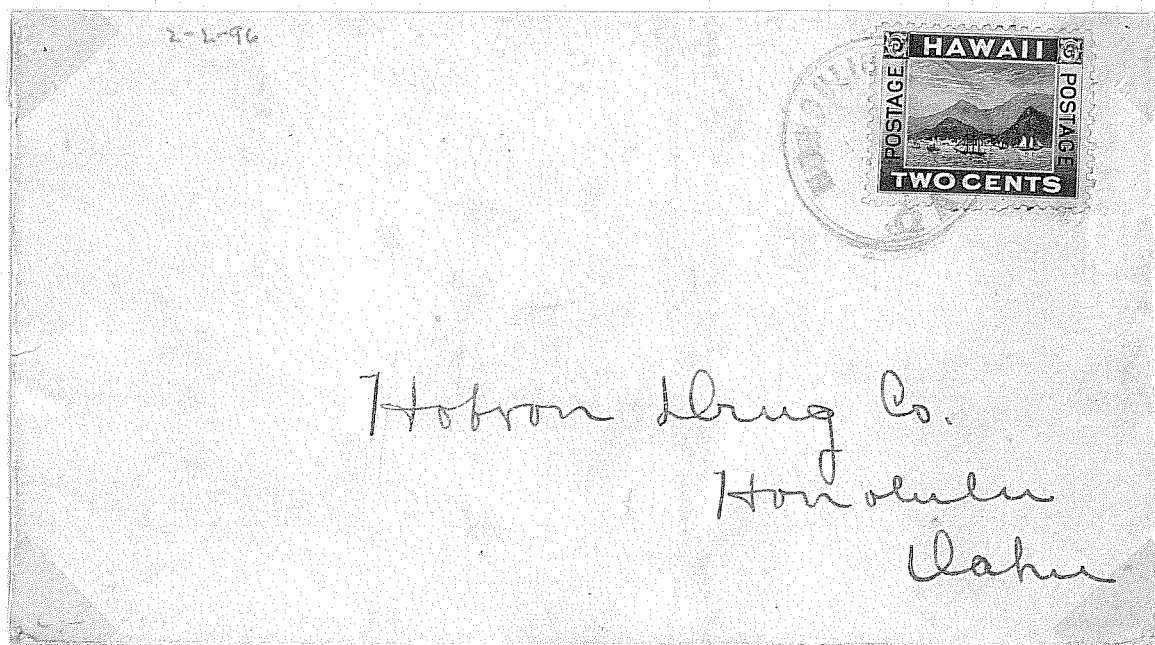 2-2-96
HAWAII
POSTAGE
POSTAGE
TWO CENTS
Hobron Drug Co.
Honolulu
Oahu